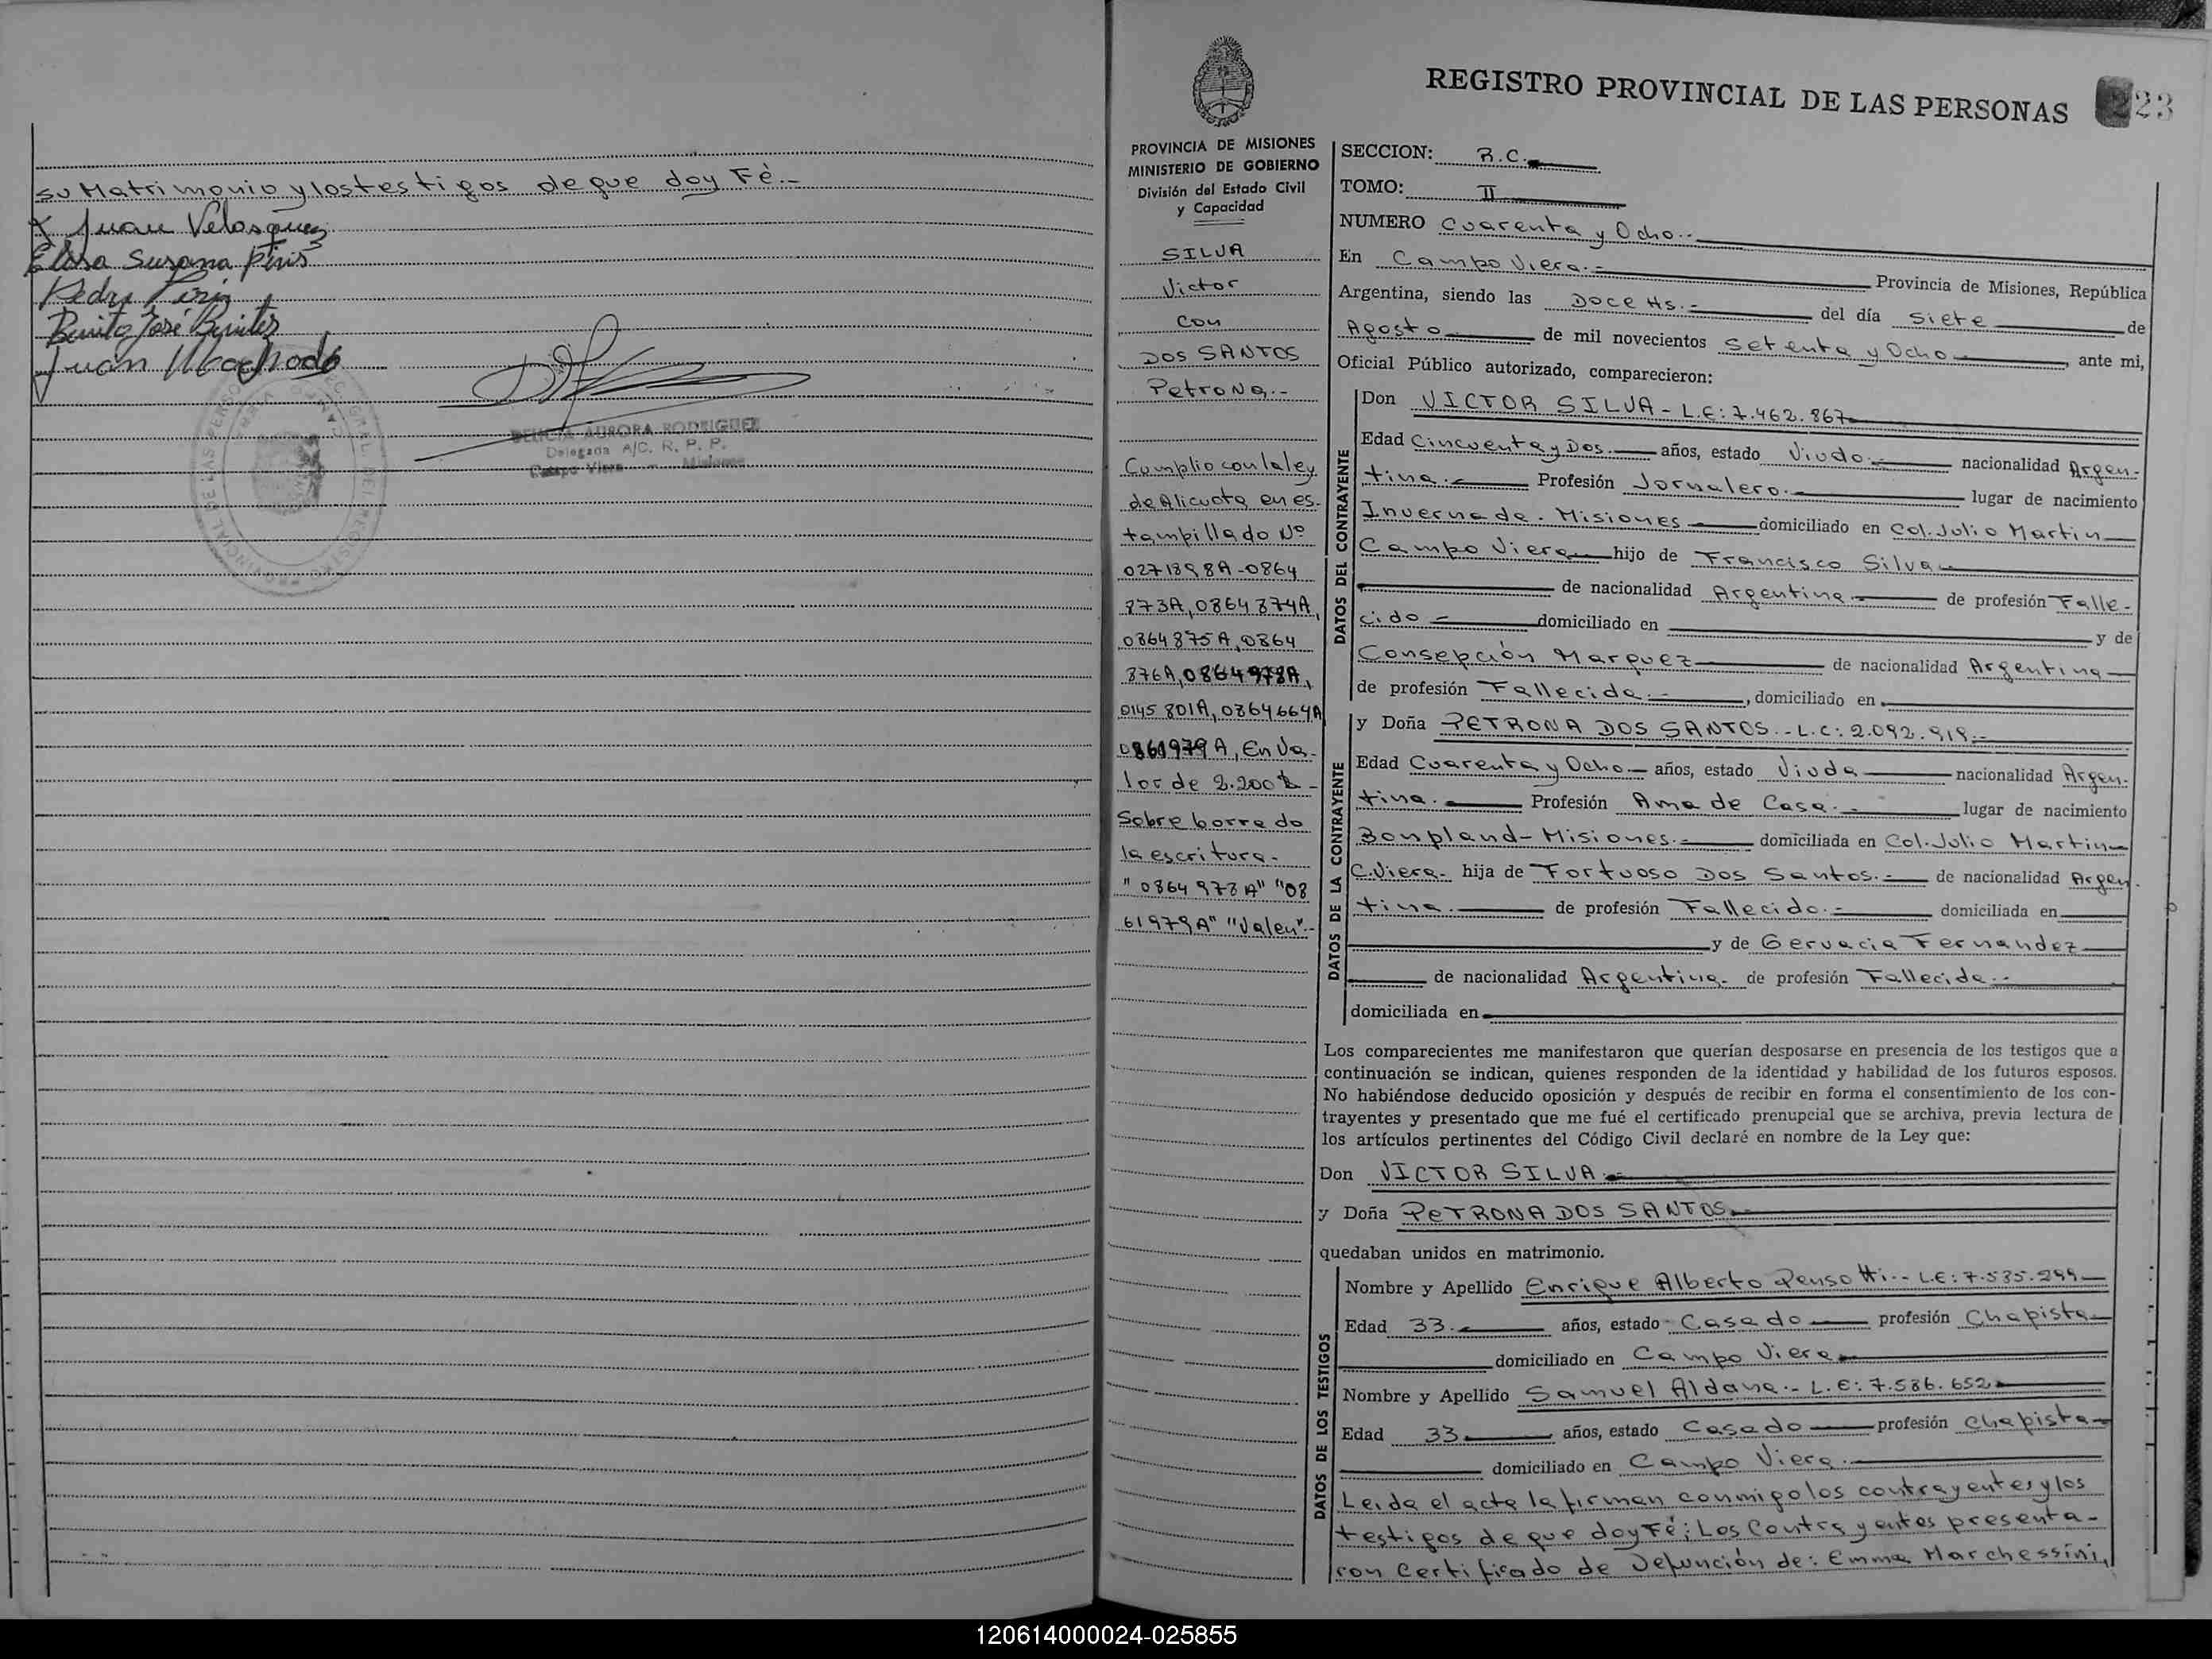 su Matrimonio y los testigos de que doy Fè.-
Juan Velasquez
Elsa Susana Piris
Pedro Piriz
Benito José Benitez
Juan Machado
DELICIA AURORA RODRIGUEZ
Delegada A/C. R. P. P.
Campo Viera - Misiones
REGISTRO PROVINCIAL DE LAS PERSONAS 223
PROVINCIA DE MISIONES
MINISTERIO DE GOBIERNO
División del Estado Civil
y Capacidad
SILVA
Victor
con
DOS SANTOS
Petrona.-
Cumplio con la ley
de Alicuota en es-
tampillado Nº
0271898A-0864
873A, 0864874A,
0864875A, 0864
876A, 0864978A,
0145801A, 0864664A
0861979A, En Va-
lor de 2.200 $ -
Sobre borrado
la escritura-
"0864978A" "08
61979A" "Valen".-
SECCION: R.C.
TOMO: II
NUMERO Cuarenta y Ocho.-
En Campo Viera.- Provincia de Misiones, República
Argentina, siendo las Doce Hs.- del día siete de
Agosto de mil novecientos Setenta y Ocho, ante mi,
Oficial Público autorizado, comparecieron:
DATOS DEL CONTRAYENTE
Don VICTOR SILVA - L.E: 7.462.867
Edad Cincuenta y Dos.- años, estado Viudo.- nacionalidad Argen-
tina.- Profesión Jornalero.- lugar de nacimiento
Invernada. Misiones domiciliado en Col. Julio Martin
Campo Viera hijo de Francisco Silva
de nacionalidad Argentina.- de profesión Falle-
cido - domiciliado en y de
Consepción Marquez de nacionalidad Argentina
de profesión Fallecida.-, domiciliado en
DATOS DE LA CONTRAYENTE
y Doña PETRONA DOS SANTOS.- L.C: 2.092.919.-
Edad Cuarenta y Ocho.- años, estado Viuda nacionalidad Argen-
tina. Profesión Ama de Casa.- lugar de nacimiento
Bonpland-Misiones.- domiciliada en Col. Julio Martin
C. Viera- hija de Fortuoso Dos Santos.- de nacionalidad Argen-
tina. de profesión Fallecido.- domiciliada en
y de Gervacia Fernandez
de nacionalidad Argentina. de profesión Fallecida.-
domiciliada en
Los comparecientes me manifestaron que querían desposarse en presencia de los testigos que a
continuación se indican, quienes responden de la identidad y habilidad de los futuros esposos.
No habiéndose deducido oposición y después de recibir en forma el consentimiento de los con-
trayentes y presentado que me fué el certificado prenupcial que se archiva, previa lectura de
los artículos pertinentes del Código Civil declaré en nombre de la Ley que:
Don VICTOR SILVA.-
y Doña PETRONA DOS SANTOS
quedaban unidos en matrimonio.
DATOS DE LOS TESTIGOS
Nombre y Apellido Enrique Alberto Pensotti.- L.E: 7.535.299
Edad 33.- años, estado Casado profesión Chapista
domiciliado en Campo Viera
Nombre y Apellido Samuel Aldana.- L.E: 7.586.652
Edad 33 años, estado Casado profesión Chapista
domiciliado en Campo Viera.
Leida el acta la firman conmigo los contrayentes y los
testigos de que doy Fé; Los Contrayentes presenta-
ron Certificado de Defunción de: Emma Marchessini,
120614000024-025855